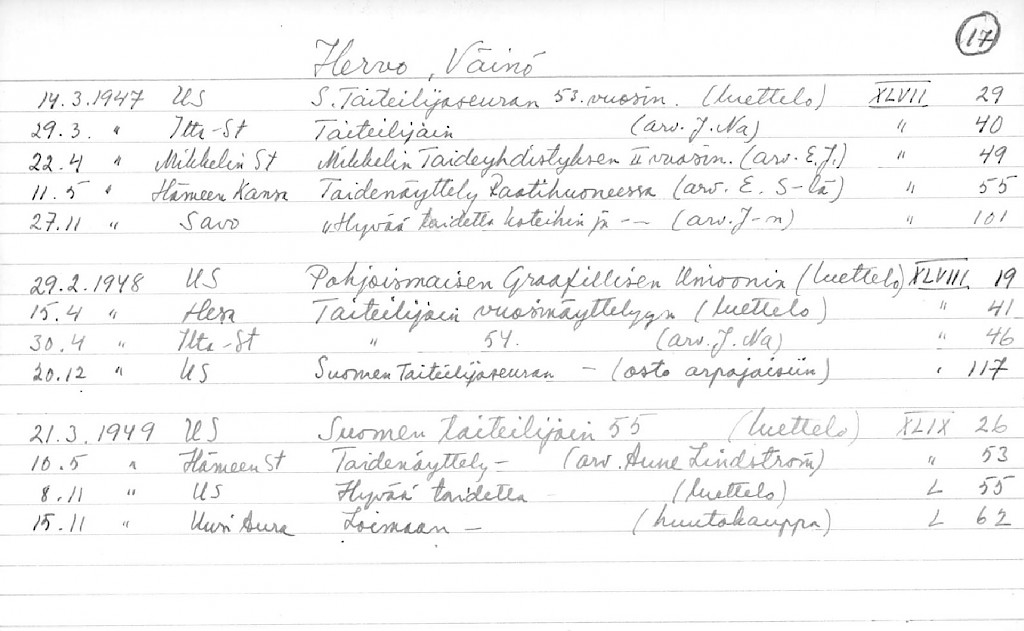 17
Hervo, Väinö
14.3.1947 US S. Taiteilijaseuran 53. vuosin. (luettelo) XLVII 29
29.3. " Ilta-St Taiteilijain (arv. J. Na) " 40
22.4 " Mikkelin St Mikkelin Taideyhdistyksen II vuosin. (arv. E.J.) " 49
11.5 " Hämeen Kansa Taidenäyttely Raatihuoneessa (arv. E. S-lä) " 55
27.11 " Savo "Hyvää taidetta koteihin ja -- (arv. J-n) " 101
29.2.1948 US Pohjoismaisen Graafillisen Unioonin (luettelo) XLVIII 19
15.4 " Hesa Taiteilijain vuosinäyttelyyn (luettelo) " 41
30.4 " Ilta-St " 54. (arv. J. Na) " 46
20.12 " US Suomen Taiteilijaseuran - (osto arpajaisiin) " 117
21.3.1949 US Suomen taiteilijain 55 (luettelo) XLIX 26
10.5 " Hämeen St Taidenäyttely - (arv. Aune Lindström) " 53
8.11 " US Hyvää taidetta - (luettelo) L 55
15.11 " Uusi Aura Loimaan - (huutokauppa) L 62